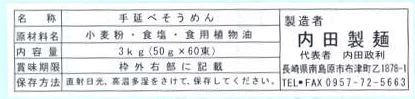 名称 手延べそうめん
原材料名 小麦粉・食塩・食用植物油
内容量 3kg(50g×60束)
賞味期限 枠外右部に記載
保存方法 直射日光、高温多湿をさけて、保存してください。
製造者
内田製麺
代表者 内田政利
長崎県南島原市布津町乙1878-1
TEL・FAX 0957-72-5663